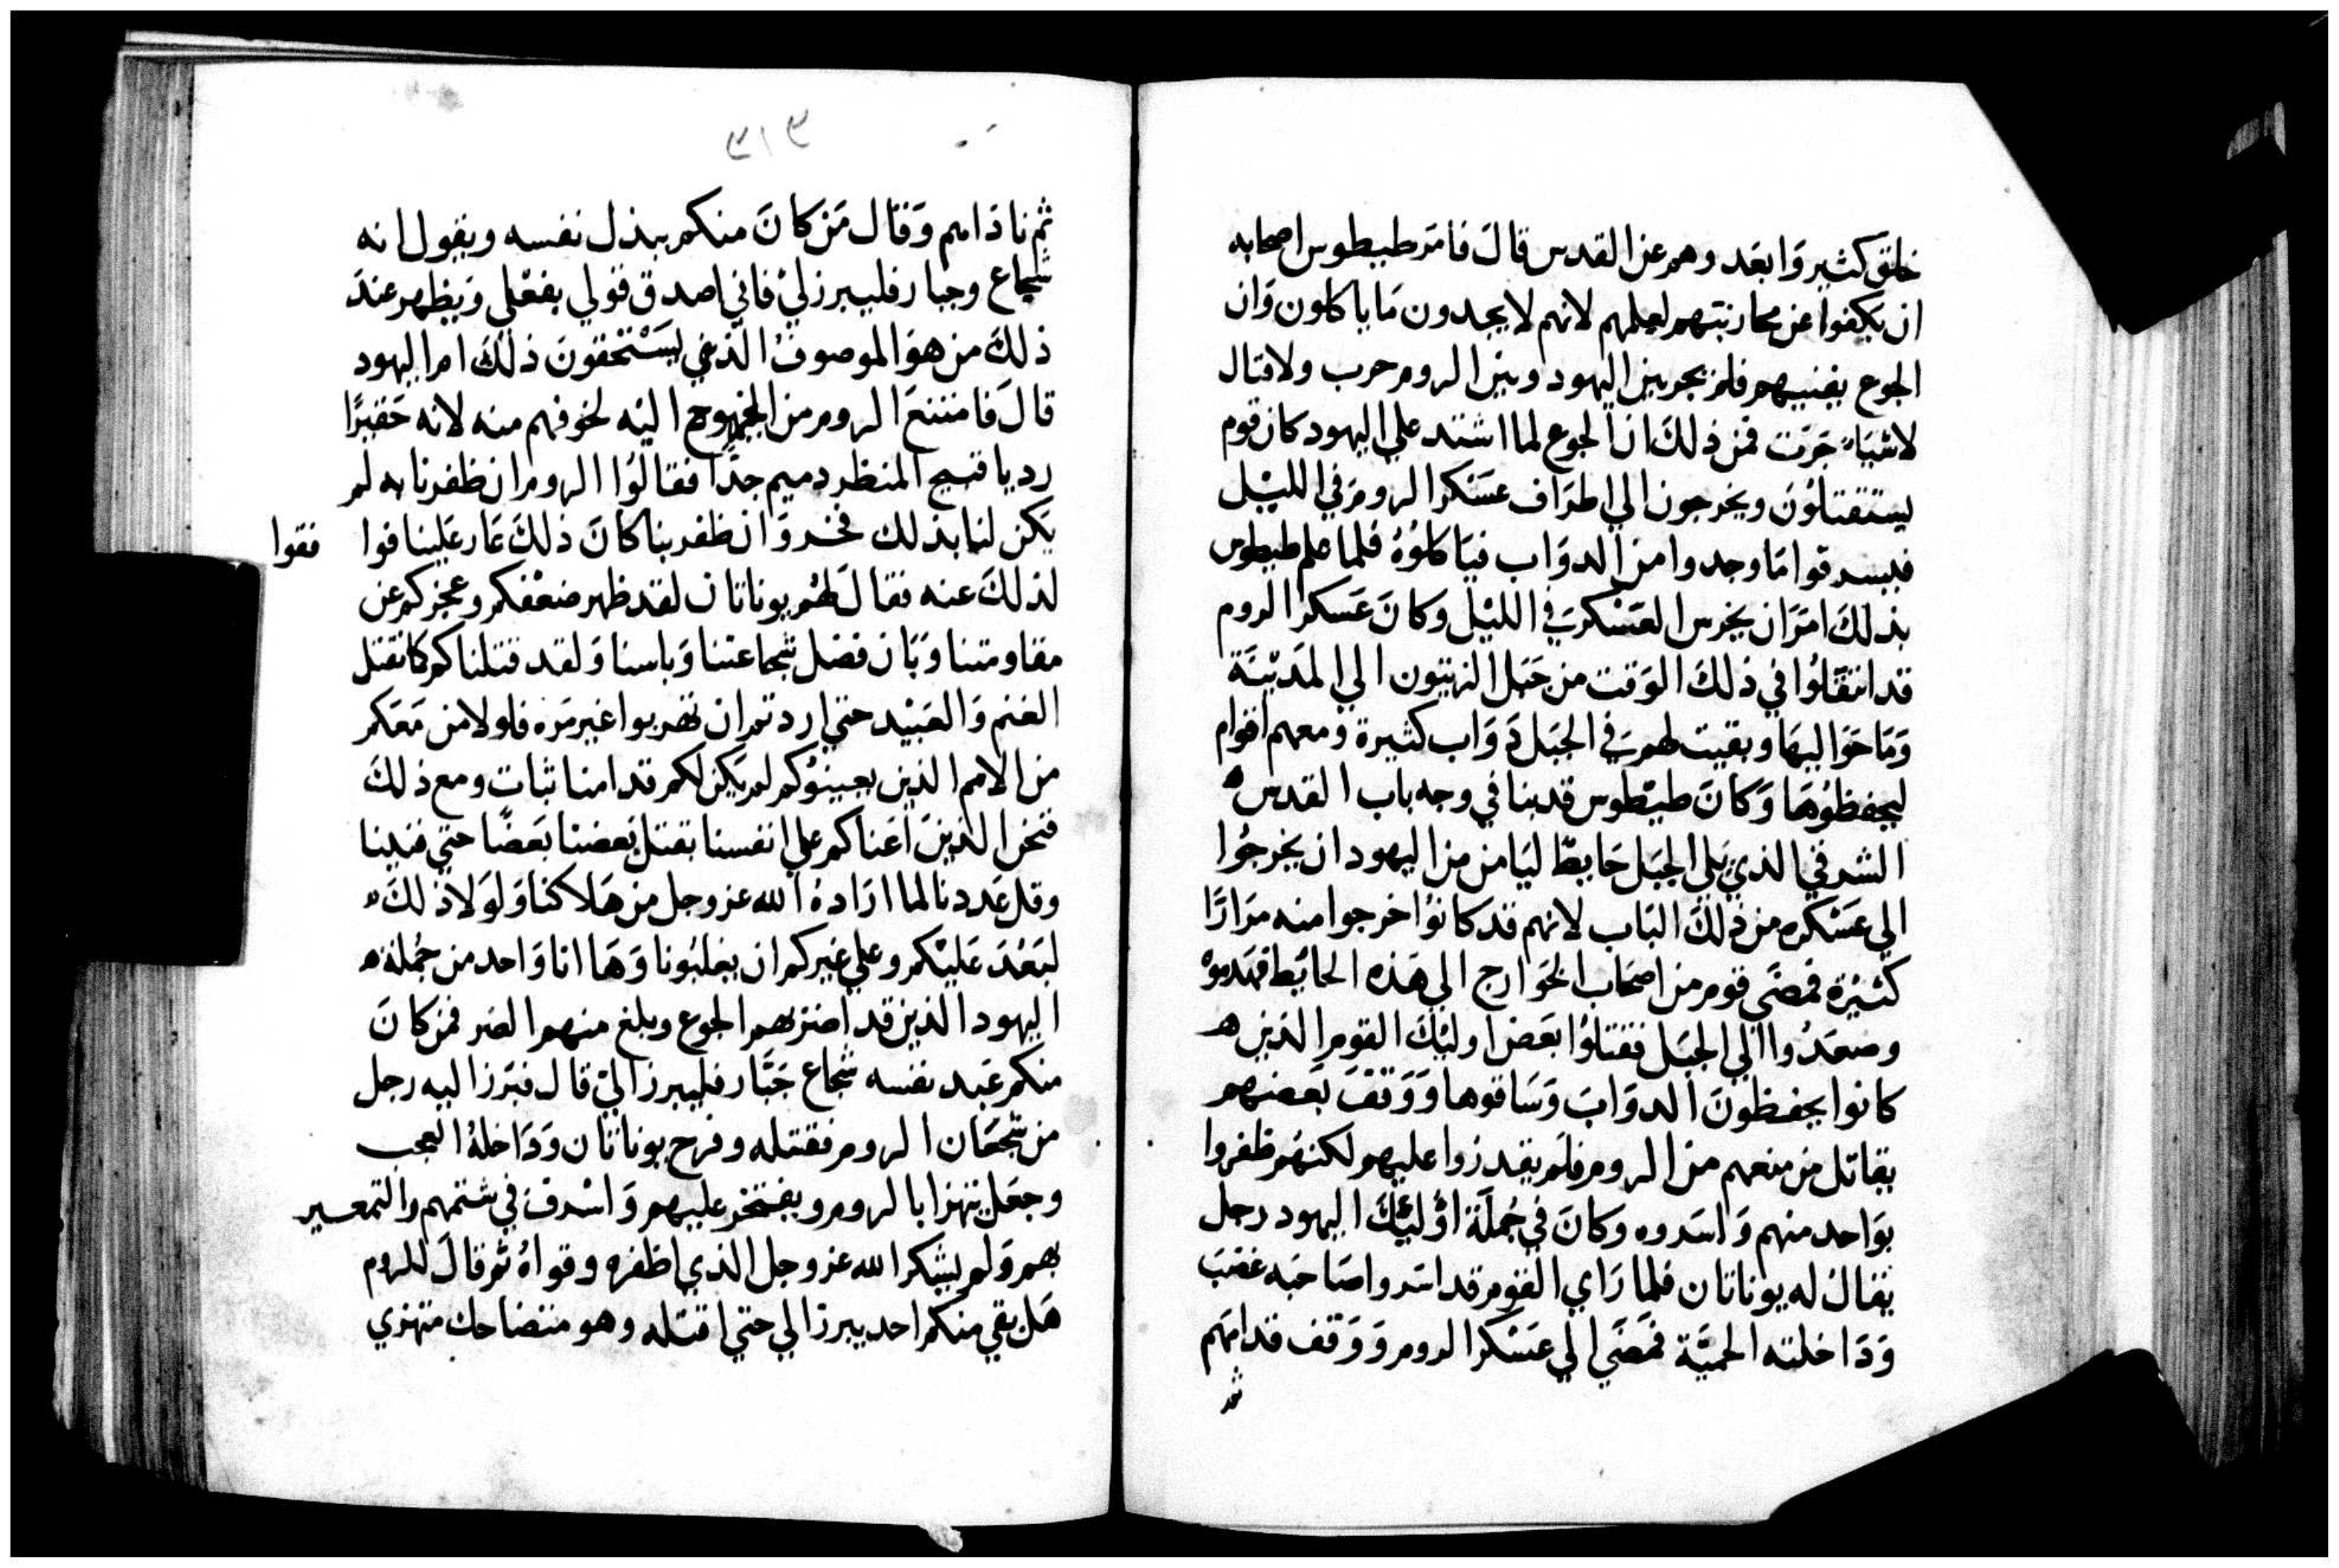 خلق كثير وَابعَد وهم عن القدس قالَ فامَر طيطوس اصحابه
ان يكفوا عن محاربتهم لعلمهم لانهم لا يجدون مَا ياكلون وَان
الجوع يفنيهم فلم يجر بين اليهود وبين الروم حرب ولا قتال
لاشيَاء جَرَت فمن ذلكَ ان الجوع لما اشتد علي اليهود كان قوم
يستقتلوُن ويخرجون الي اطرَاف عسَكر الروم في الليْل
فيسرقوا مَا وجدوا من الدوَاب فيَاكلوُهُ فلما علم طيطوس
بذلكَ امَرَ ان يحرس العَسْكر في الليْل وكانَ عَسكر الروم
قد انتقلوُا في ذلكَ الوَقت من جَبَل الزيتون الي المَديْنَة
وَمَا حَوَاليهَا وبقيت لهم في الجبَل دَوَاب كثيرة ومعهم اقوام
ليحفظوُهَا وَكانَ طيْطوس قد بنا في وجه باب القدس
الشرقي الذي يَلي الجبَل حَايط ليَامن من اليهود ان يخرجُوا
الي عسَكره من ذلكَ البَاب لانهم قد كانوُا خرجوا منه مرَارًا
كثيْرة فمضَي قوم من اصحَاب الخوَارج الي هَذه الحائط فهَدموهْ
وصعَدُوا الي الجبَل فقتلوُا بعَض اوليْكَ القوم الذين
كانوا يحفظونَ الدوَابَ وَسَاقوها وَوَقفَ بَعضهم
يقاتل من منعهم من الروم فلم يقدرُوا عليهم لكنهُم ظفروا
بوَاحد منهم وَاسَروه وكانَ في جُملَة اوُليْكَ اليهود رجل
يقالُ له يوناتان فلما رَاي القوم قد اسَروا صَاحبَه غضَبَ
وَدَاخلته الحميَّة فمضَي الي عسَكر الروم وَوَقف قدامَهم
ثم
ثم نادَاهم وَقال مَن كانَ منكم يبذل نفسه ويقول انه
شجاع وجبار فليبرز ليْ فاني اصدق قولي بفعْلي وَيظهر عندَ
ذلكَ من هوَ الموصوفُ الذي يسَتْحقونَ ذلكَ ام اليهود
قالَ فامتنعَ الروم من الخروج اليْه لخوفهم منه لانه حَقيرًا
رديا قبيح المنظر دميم جدًا فقالوُا الروم ان ظفرنا به لم
يَكن لنا بذلك فخر وَان ظفر بنا كانَ ذلكَ عَار عَلينا فوا فقوا
لذلكَ عنه فقالَ لهْم يوناتان لقد ظهر ضعْفكم وعجزكم عن
مقاومتنا وَبَان فضل شجاعتنا وَباسنا وَلقد قتلناكم كما نقتل
الغنم وَالعَبيْد حتي اردتم ان تهربوا غير مَره فلولا من مَعَكم
من الامم الذين يعينوُكم لم يَكن لكم قدامنا ثبات ومع ذلكَ
فنحن الذينَ اعَناكم علي انفسنا بقتل بعضنا بَعضًا حتي فنينا
وقل عَددنا لما ارَادهُ الله عز وجل من هَلاكنا وَلوَلا ذلكَ
لبَعُدَ عَليْكم وعلي غيركم ان يغلبُونا وَهَا انا وَاحد من جُملة
اليهود الذين قد اضر بهم الجوع وبلغ منهم الضر فمن كانَ
منكم عَبد نفسه شجاع جَبَّار فليبرز اليْ قال فبَرز اليه رجل
من شجعَان الروم فقتله وفرح يوناتان وَدَاخلهُ العجب
وجعَل يتهزا بالروم ويفتخر عليهم وَاسْرف في شتمهم والتمعيير
بهم وَلم يشكر الله عز وجل الذي اظفره وقواهُ ثم قالَ للروم
هَل بقي منكم احد يبرز الي حتي اقتله وهو متضاحك متهزي